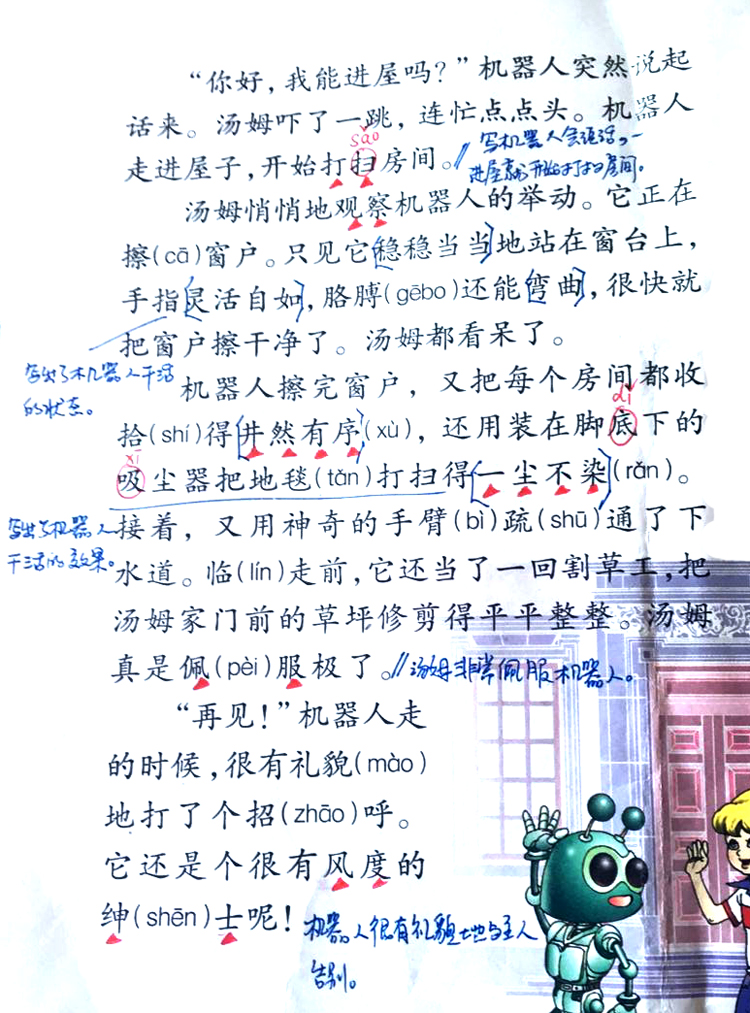 “你好，我能进屋吗？”机器人突然说起
话来。汤姆吓了一跳，连忙点点头。机器人
sǎo
走进屋子，开始打扫房间。
写机器人会说话，一
进屋就开始打扫房间。
汤姆悄悄地观察机器人的举动。它正在
擦(cā)窗户。只见它稳稳当当地站在窗台上，
手指灵活自如，胳膊(gēbo)还能弯曲，很快就
把窗户擦干净了。汤姆都看呆了。
写出了机器人干活
的状态。
机器人擦完窗户，又把每个房间都收
dǐ
拾(shí)得井然有序(xù)，还用装在脚底下的
xī
吸尘器把地毯(tǎn)打扫得一尘不染(rǎn)。
写出了机器人
干活的效果。
接着，又用神奇的手臂(bì)疏(shū)通了下
水道。临(lín)走前，它还当了一回割草工，把
汤姆家门前的草坪修剪得平平整整。汤姆
真是佩(pèi)服极了。
汤姆非常佩服机器人。
“再见！”机器人走
的时候，很有礼貌(mào)
地打了个招(zhāo)呼。
它还是个很有风度的
绅(shēn)士呢！
机器人很有礼貌地与主人
告别。